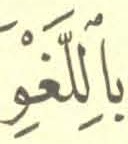 بِٱللَّغْوِ